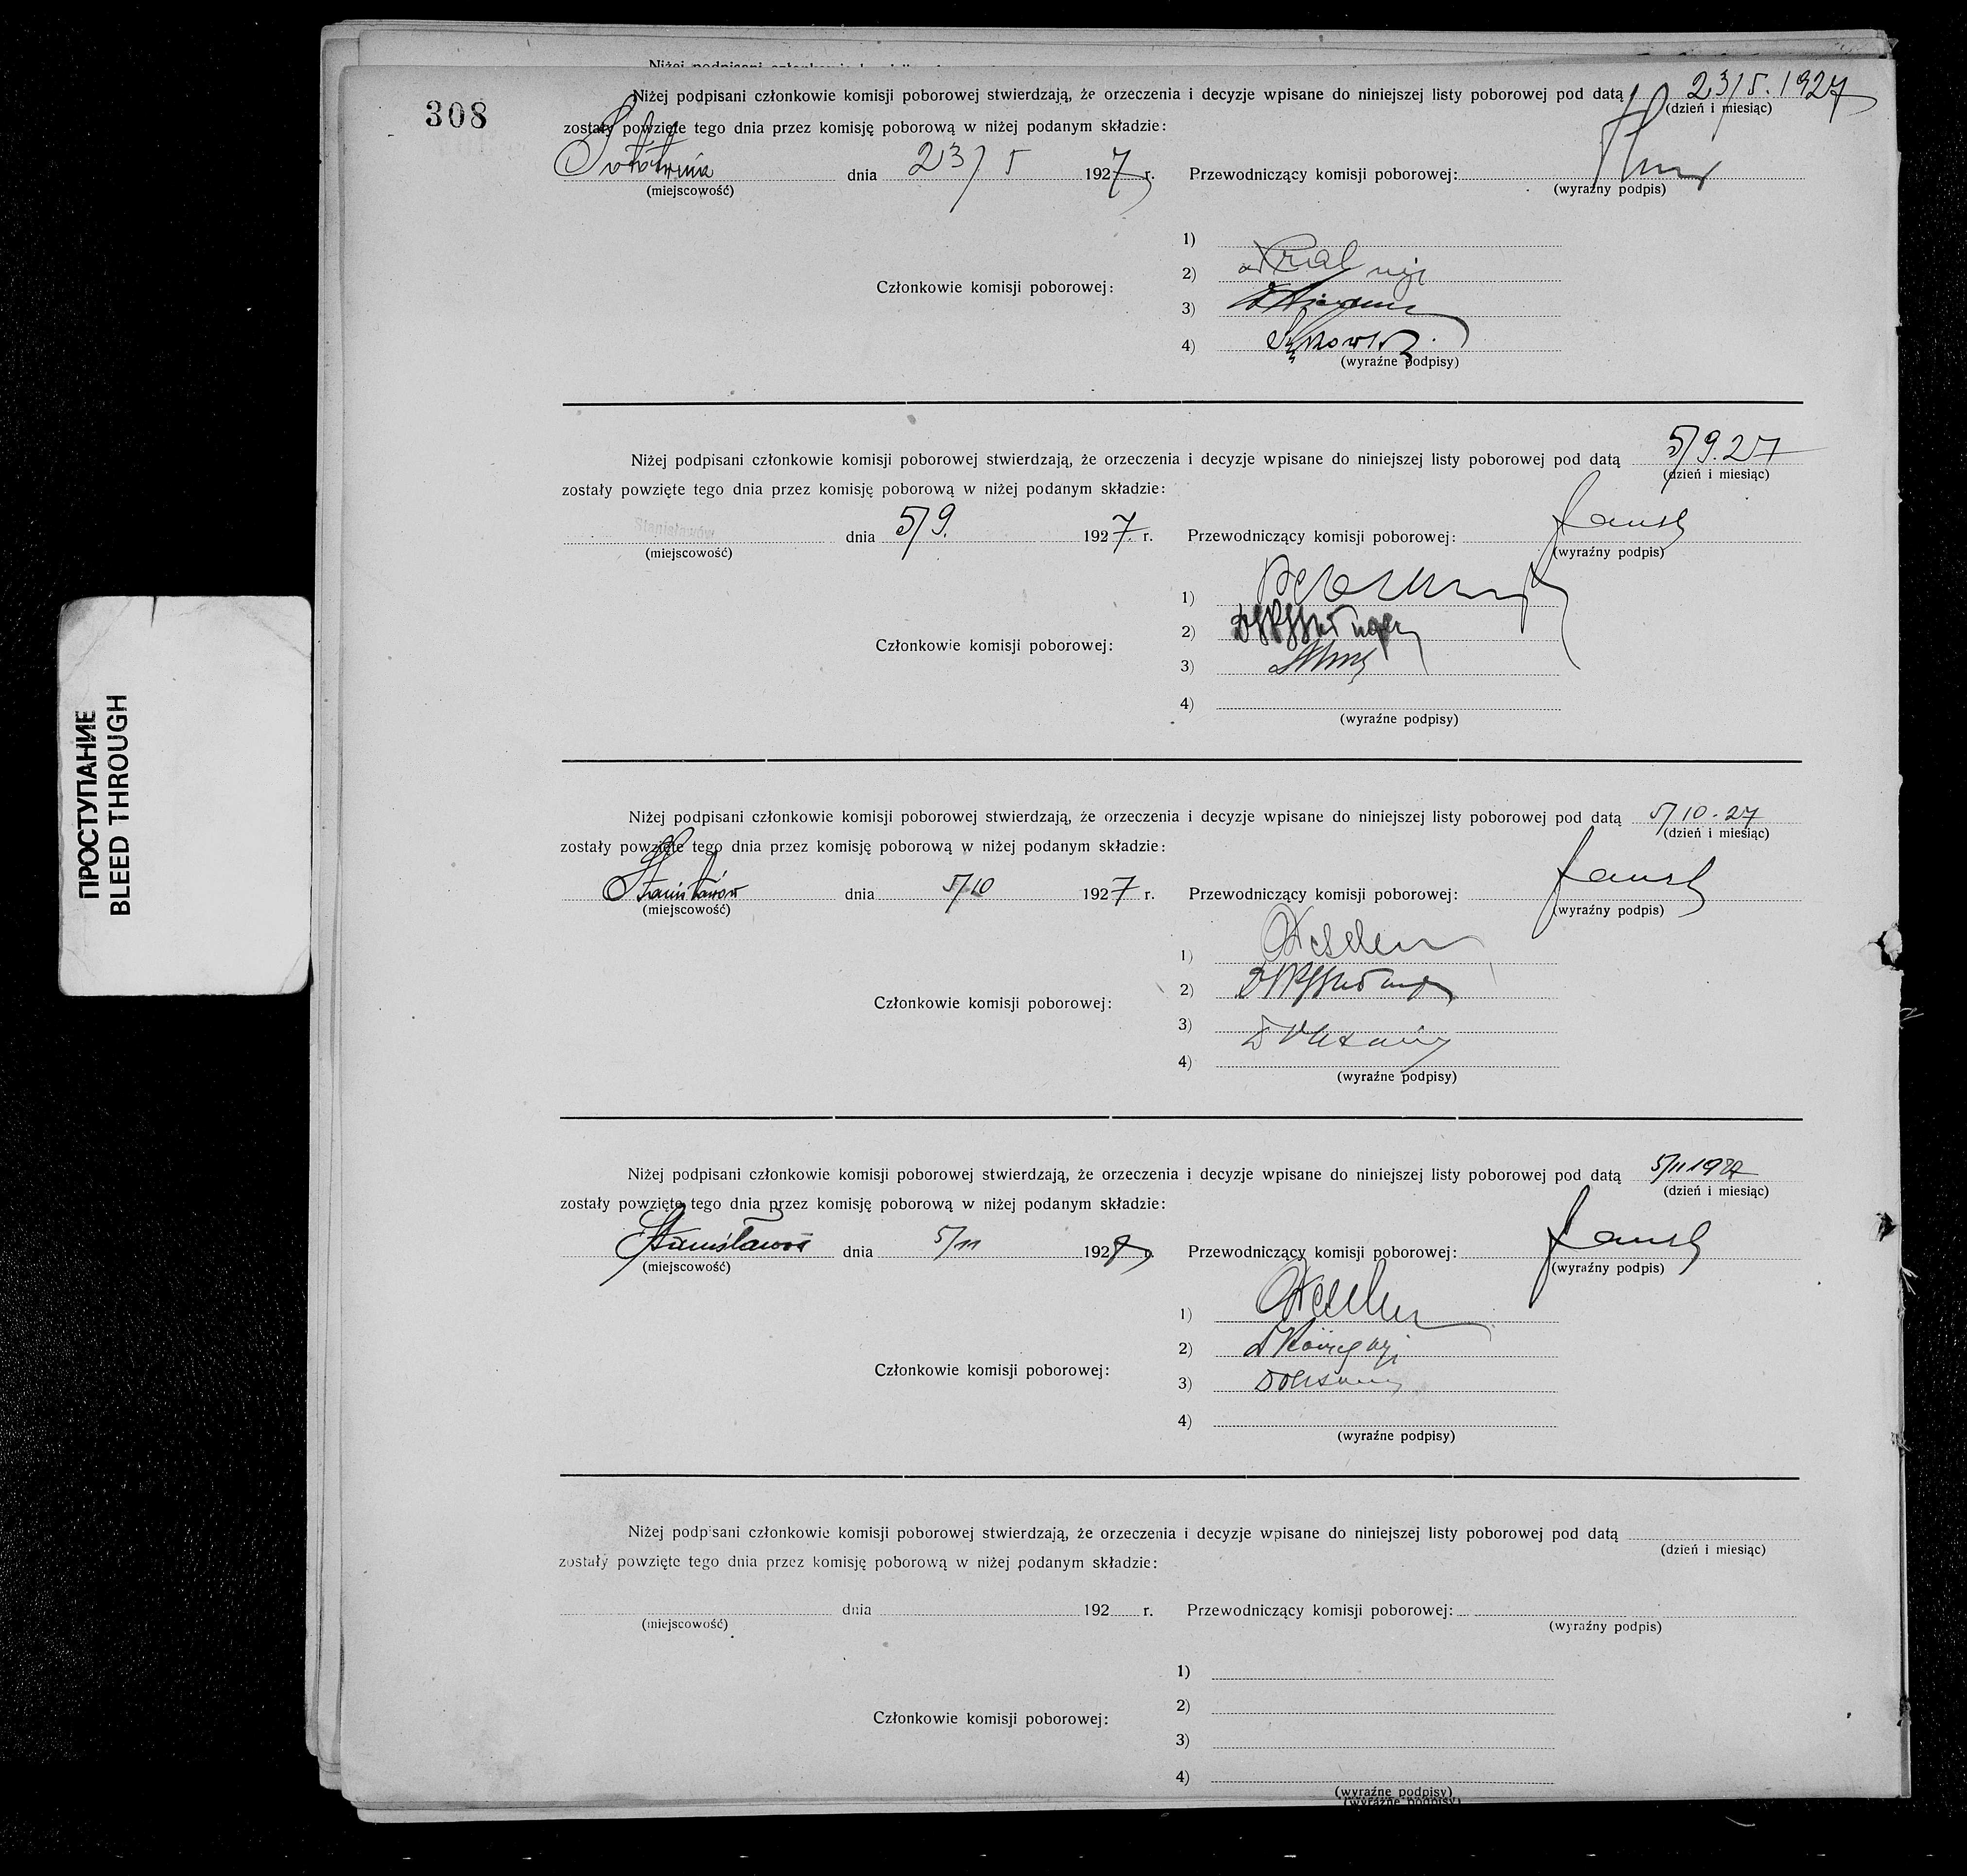 Niżej podpisani członkowie komisji
308
Niżej podpisani członkowie komisji poborowej stwierdzają, że orzeczenia i decyzje wpisane do niniejszej listy poborowej pod datą 23/5. 1927
(dzień i miesiąc)
zostały powzięte tego dnia przez komisję poborową w niżej podanym składzie:
dnia 23/5 1927 r. Przewodniczący komisji poborowej:
(miejscowość) (wyraźny podpis)
1)
2)
Członkowie komisji poborowej:
3)
4)
(wyraźne podpisy)
Niżej podpisani członkowie komisji poborowej stwierdzają, że orzeczenia i decyzje wpisane do niniejszej listy poborowej pod datą 5/9.27
(dzień i miesiąc)
zostały powzięte tego dnia przez komisję poborową w niżej podanym składzie:
Stanisławów dnia 5/9. 1927. r. Przewodniczący komisji poborowej:
(miejscowość) (wyraźny podpis)
1)
2)
Członkowie komisji poborowej:
3)
4)
(wyraźne podpisy)
Niżej podpisani członkowie komisji poborowej stwierdzają, że orzeczenia i decyzje wpisane do niniejszej listy poborowej pod datą 5/10.27
(dzień i miesiąc)
zostały powzięte tego dnia przez komisję poborową w niżej podanym składzie:
Stanisławów dnia 5/10 1927 r. Przewodniczący komisji poborowej:
(miejscowość) (wyraźny podpis)
1)
2)
Członkowie komisji poborowej:
3)
4)
(wyraźne podpisy)
Niżej podpisani członkowie komisji poborowej stwierdzają, że orzeczenia i decyzje wpisane do niniejszej listy poborowej pod datą 5/11 1927
(dzień i miesiąc)
zostały powzięte tego dnia przez komisję poborową w niżej podanym składzie:
Stanisławów dnia 5/11 192 r. Przewodniczący komisji poborowej:
(miejscowość) (wyraźny podpis)
1)
2)
Członkowie komisji poborowej:
3)
4)
(wyraźne podpisy)
Niżej podpisani członkowie komisji poborowej stwierdzają, że orzeczenia i decyzje wpisane do niniejszej listy poborowej pod datą
(dzień i miesiąc)
zostały powzięte tego dnia przez komisję poborową w niżej podanym składzie:
dnia 192 r. Przewodniczący komisji poborowej:
(miejscowość) (wyraźny podpis)
1)
2)
Członkowie komisji poborowej:
3)
4)
(wyraźne podpisy)
(wyraźne podpisy)
ПРОСТУПАНИЕ
BLEED THROUGH